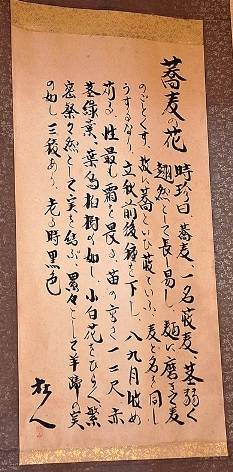 蕎麦の花
時珍曰、蕎麦、一名荍麦、茎弱く
翹然として長し易し、麺に磨きて麦
のごとくす、故に蕎といひ荍といふ、麦と名を同し
うするなり、立秋前後種を下し、八九月收め
苅る、性最も霜を畏る、苗の高さ一二尺、赤
茎緑葉、葉烏桕樹の如し、小白花をひらく、繁
密粲々然として実を結ぶ、累々として羊蹄の実
の如し、三稜あり、老る時黒色